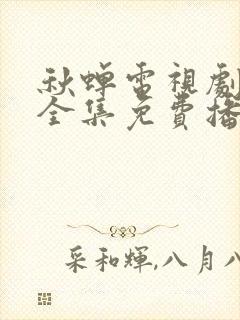 秋蟬電視劇
全集免費播
采和輝,八月八